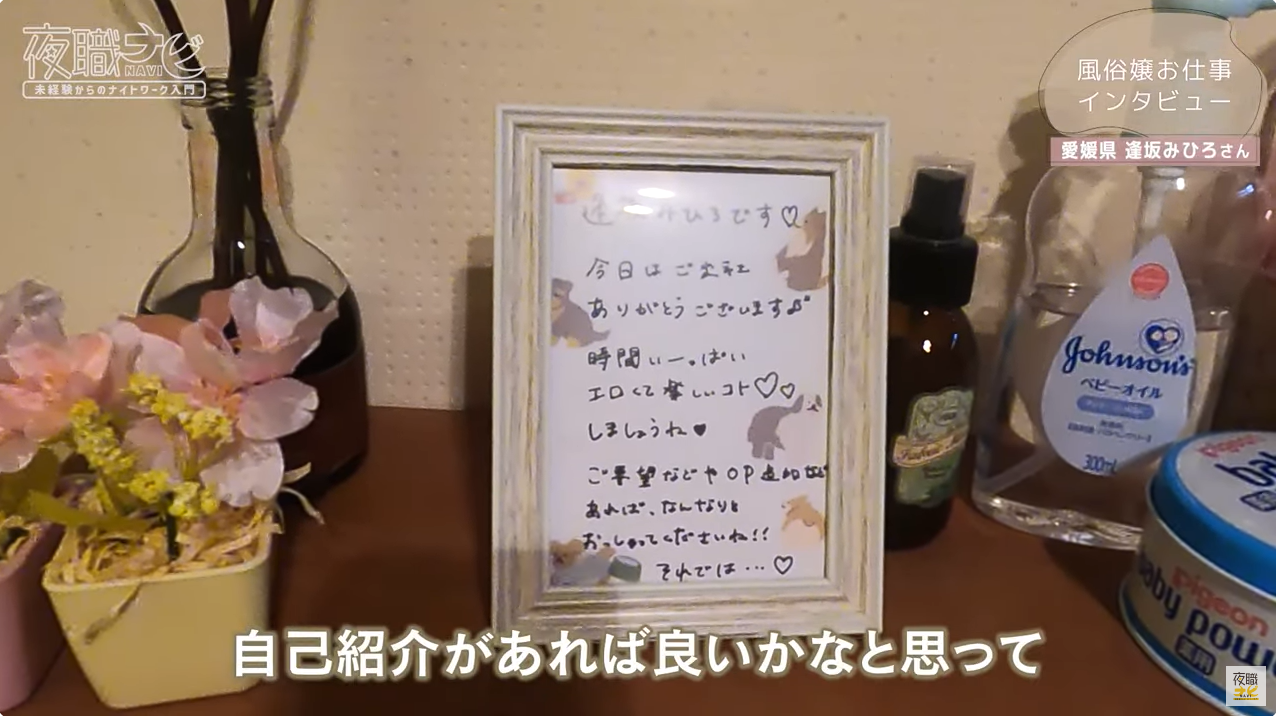 夜職ナビ
NAVI
未経験からのナイトワーク入門
風俗嬢お仕事
インタビュー
愛媛県 逢坂みひろさん
逢坂みひろです♡
今日はご来社
ありがとうございます♪
時間いーっぱい
エロくて楽しいコト♡♡
しましょうね♥
ご要望などやOP追加など
あれば、なんなりと
おっしゃってくださいね!!
それでは…♡
Johnson's
ベビーオイル
300ml
Pigeon
baby pow
薬用
自己紹介があれば良いかなと思って
夜職
ナビ